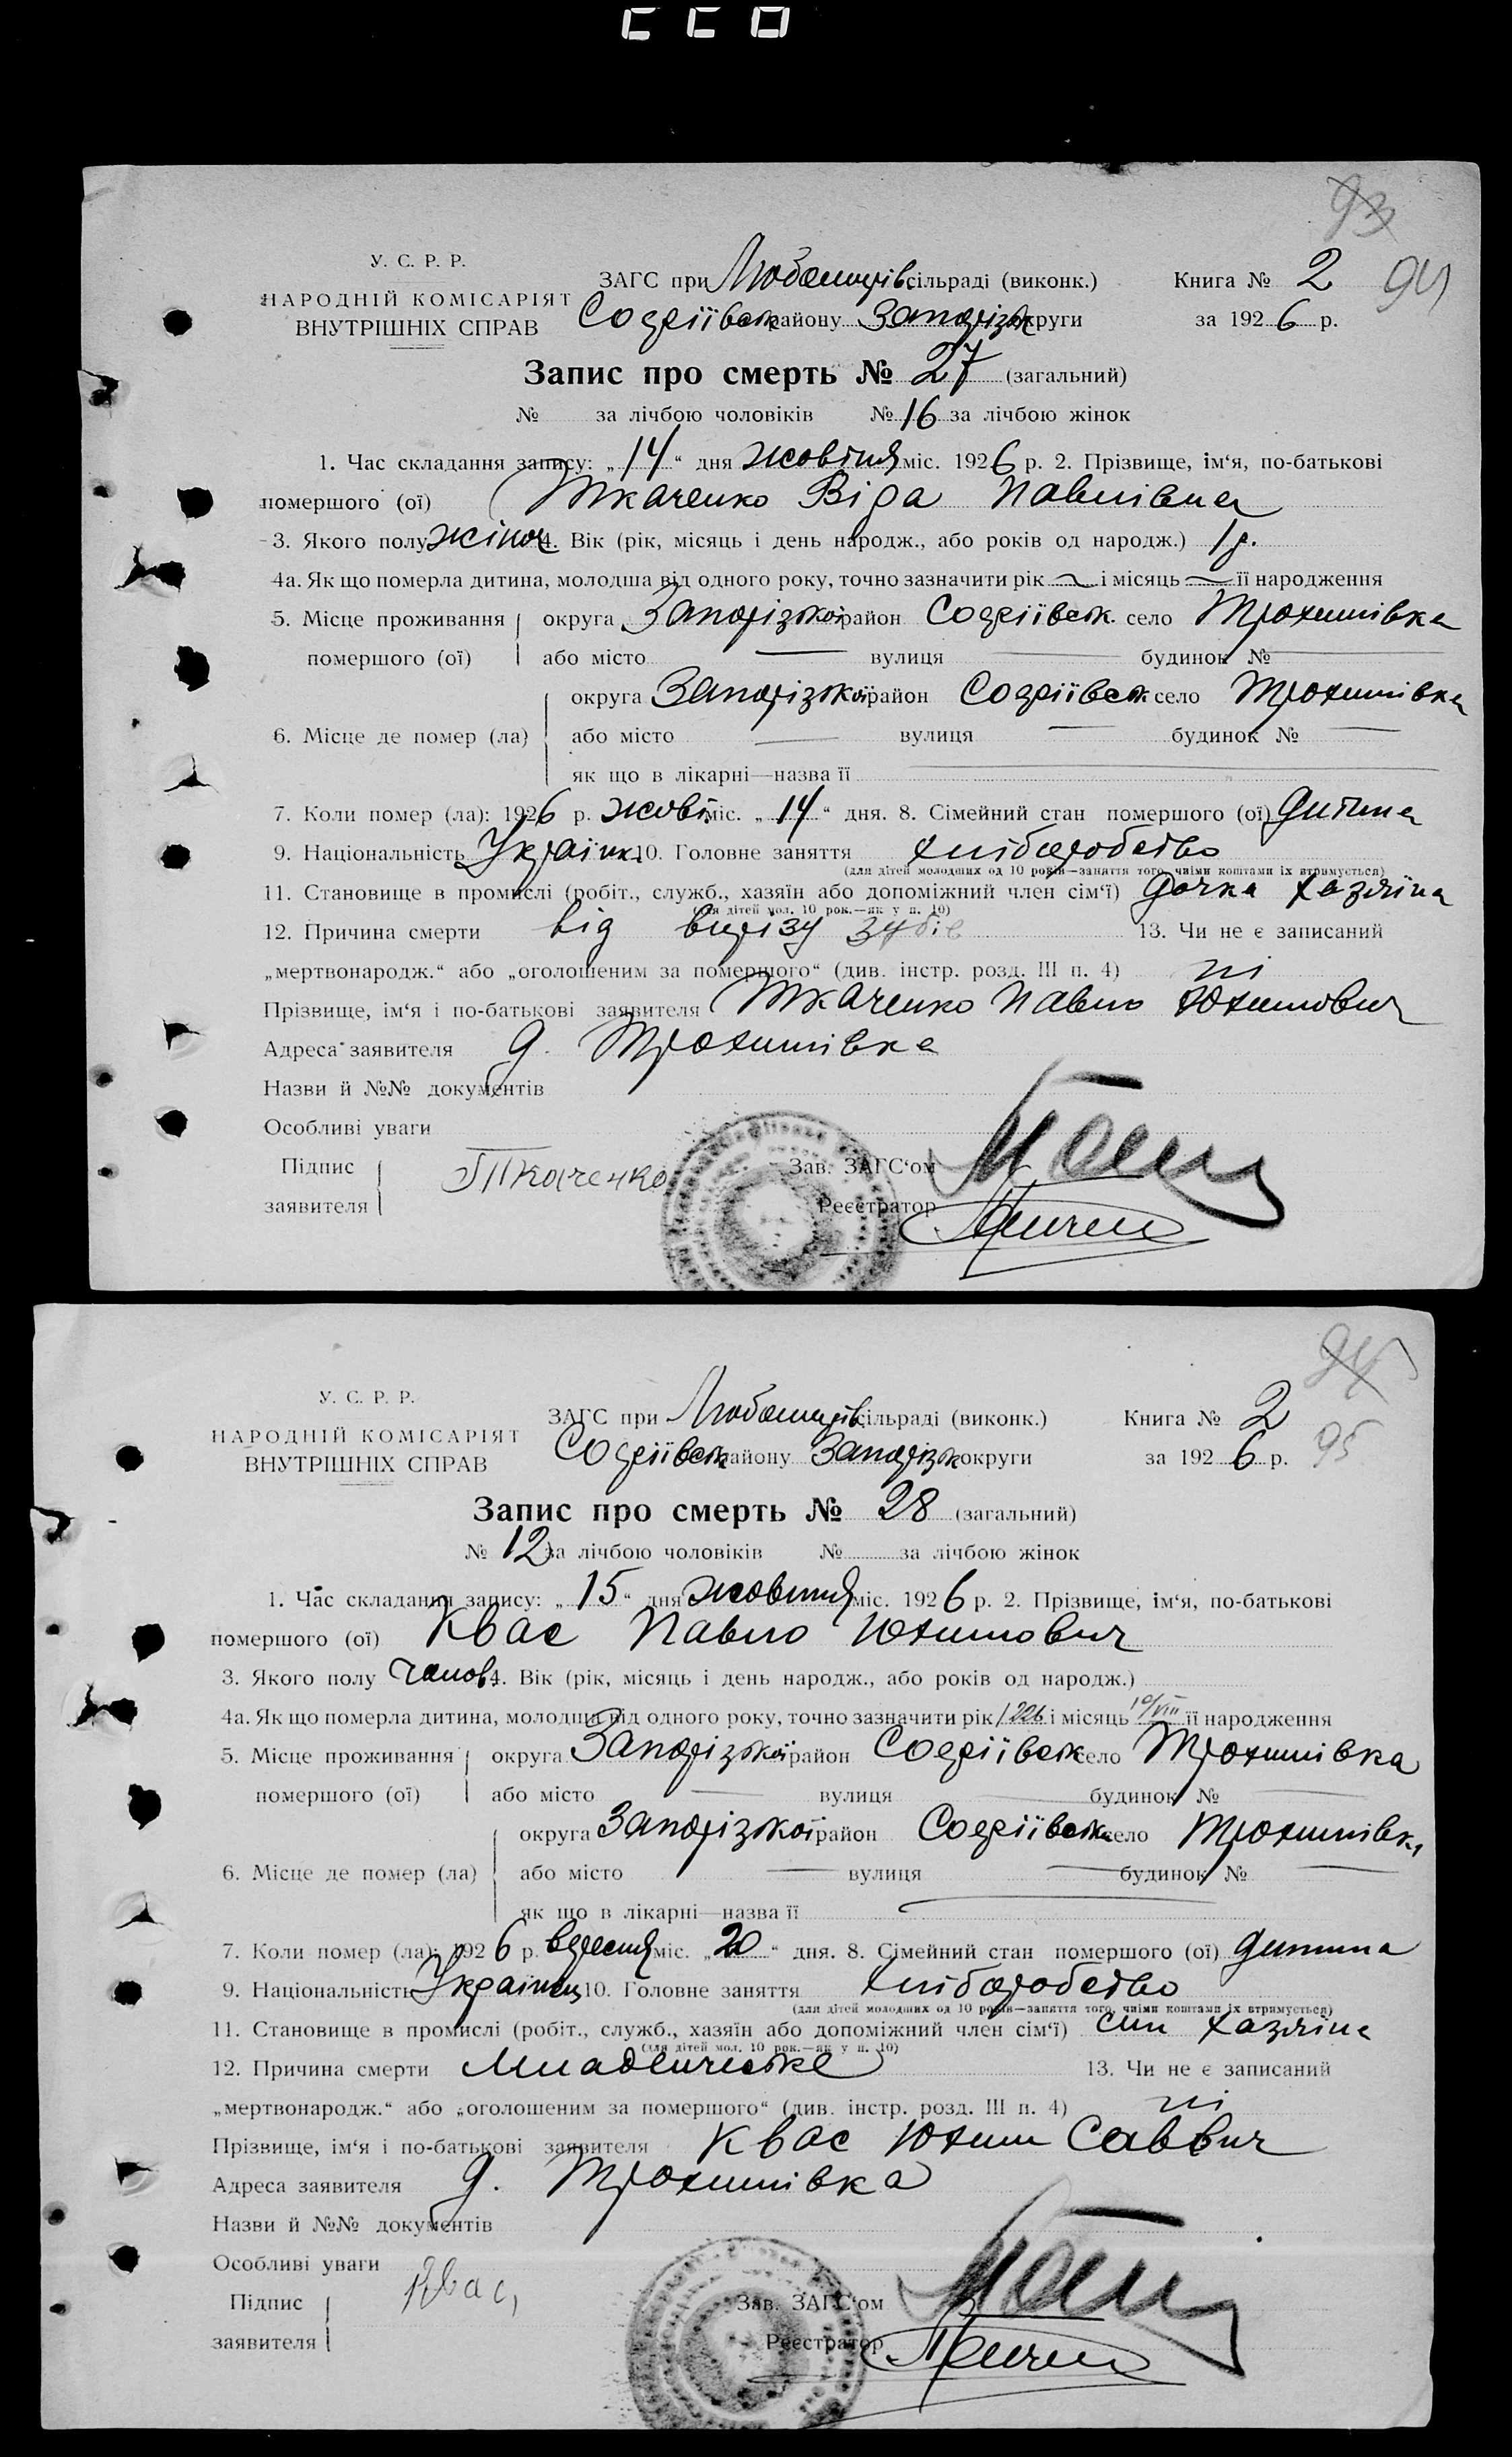 93
У. С. Р. Р.
НАРОДНІЙ КОМІСАРІЯТ
ВНУТРІШНІХ СПРАВ
ЗАГС при Любомирів. сільраді (виконк.)
Софіївськ району Запоріжк округи
Книга № 2
94
за 1926 р.
Запис про смерть № 27 (загальний)
№ за лічбою чоловіків № 16 за лічбою жінок
1. Час складання запису: „14“ дня жовтня міс. 1926 р. 2. Прізвище, ім‘я, по-батькові
помершого (ої) Ткаченко Віра Павлівна
3. Якого полу жіноч 4. Вік (рік, місяць і день народж., або років од народж.) 1 р.
4а. Як що померла дитина, молодша від одного року, точно зазначити рік — і місяць — її народження
5. Місце проживання округа Запоріжкої район Софіївськ. село Трохимівка
помершого (ої) або місто — вулиця — будинок № —
округа Запоріжкої район Софіївськ село Трохимівка
6. Місце де помер (ла) або місто — вулиця — будинок № —
як що в лікарні—назва її —
7. Коли помер (ла): 1926 р. жовт міс. „14“ дня. 8. Сімейний стан помершого (ої) дитина
9. Національність Україн. 10. Головне заняття хліборобство
(для дітей молодших од 10 років—заняття того, чиїми коштами їх втримується)
11. Становище в промислі (робіт., служб., хазяїн або допоміжний член сім‘ї) дочка хазяїна
(для дітей мол. 10 рок.—як у п. 10)
12. Причина смерти від вирізу зубів 13. Чи не є записаний
„мертвонародж.“ або „оголошеним за помершого“ (див. інстр. розд. III п. 4) ні
Прізвище, ім‘я і по-батькові заявителя Ткаченко Павло Юхимович
Адреса заявителя д. Трохимівка
Назви й №№ документів
Особливі уваги
Підпис
заявителя Ткаченко
Зав. ЗАГС‘ом
Реєстратор
94
У. С. Р. Р.
НАРОДНІЙ КОМІСАРІЯТ
ВНУТРІШНІХ СПРАВ
ЗАГС при Любомирів сільраді (виконк.)
Софіївськ району Запоріжк округи
Книга № 2
за 1926 р.
95
Запис про смерть № 28 (загальний)
№ 12 за лічбою чоловіків № за лічбою жінок
1. Час складання запису: „15“ дня жовтня міс. 1926 р. 2. Прізвище, ім‘я, по-батькові
помершого (ої) Квас Павло Юхимович
3. Якого полу чолов 4. Вік (рік, місяць і день народж., або років од народж.)
4а. Як що померла дитина, молодша від одного року, точно зазначити рік 1926 і місяць 10/VIII її народження
5. Місце проживання округа Запоріжкої район Софіївськ село Трохимівка
помершого (ої) або місто — вулиця будинок № —
округа Запоріжкої район Софіївськ село Трохимівк
6. Місце де помер (ла) або місто — вулиця — будинок № —
як що в лікарні—назва її —
7. Коли помер (ла): 1926 р. вересня міс. „20“ дня. 8. Сімейний стан помершого (ої) дитина
9. Національність Українец 10. Головне заняття хліборобство
(для дітей молодших од 10 років—заняття того, чиїми коштами їх втримується)
11. Становище в промислі (робіт., служб., хазяїн або допоміжний член сім‘ї) син хазяїна
(для дітей мол. 10 рок.—як у п. 10)
12. Причина смерти Младенческе 13. Чи не є записаний
„мертвонародж.“ або „оголошеним за помершого“ (див. інстр. розд. III п. 4) ні
Прізвище, ім‘я і по-батькові заявителя Квас Юхим Саввич
Адреса заявителя д. Трохимівка
Назви й №№ документів
Особливі уваги
Підпис
заявителя Квас,
Зав. ЗАГС‘ом
Реєстратор